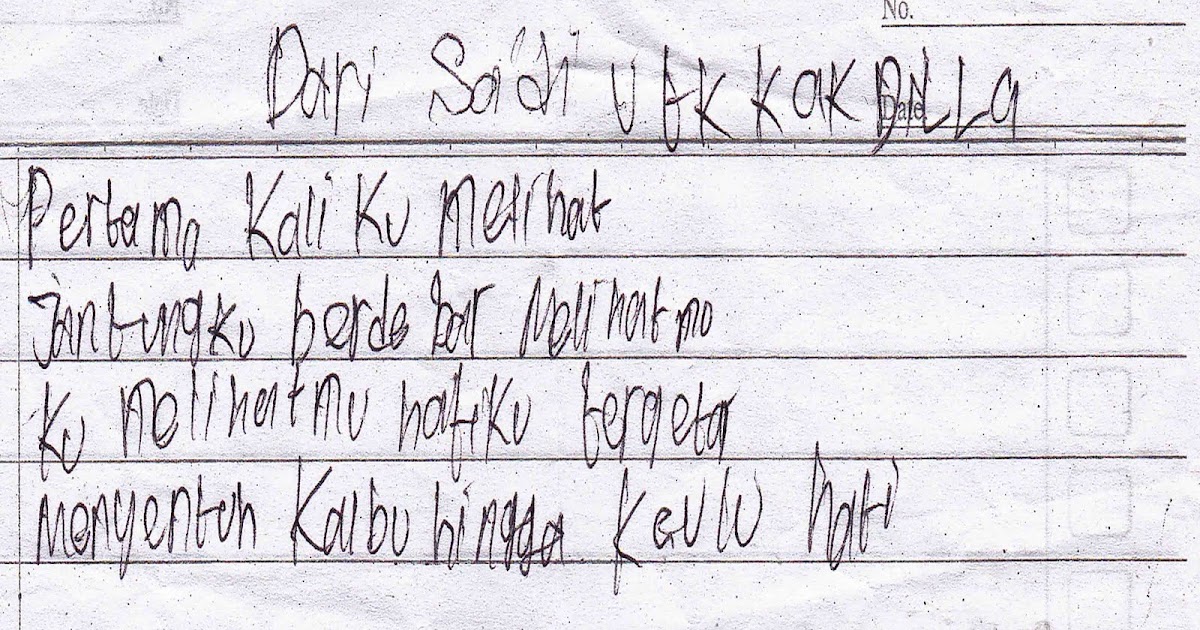 No.
Dari Sa'di Utk Kak DiLLa
Date
Pertama Kali Ku Melihat
Jantungku berdebar Melihatmo
Ku Melihatmu hatiku tergetar
Menyentuh Kalbu hingga Keulu hati